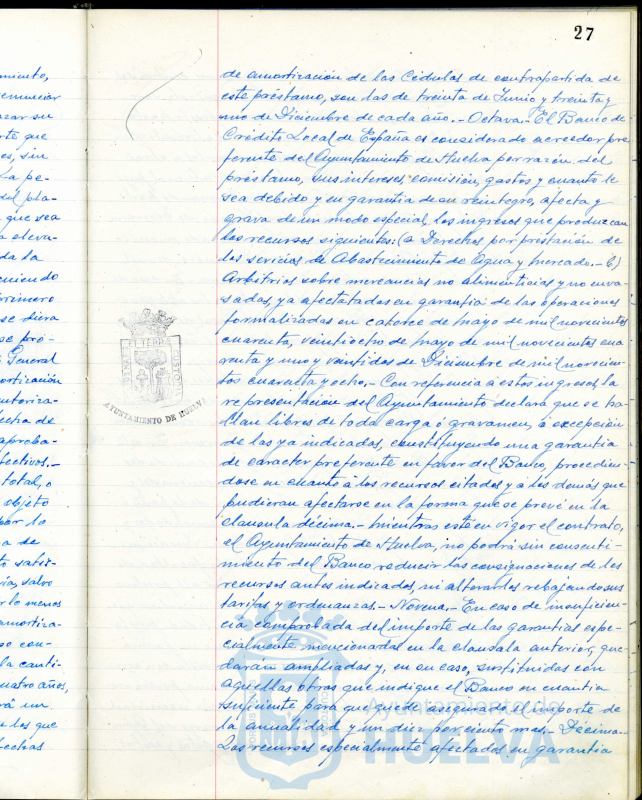 27
miento,
enunciar
zar su
rte que
es, sin
La pe-
del pla-
que sea
a eleva-
da la
eniendo
primero
se diera
se pró-
General
ortización
utoriza-
echa de
aproba-
fectivos.-
total, o
objeto
por lo
a de
to satis-
ría, salvo
r lo menos
amortiza-
so con-
la canti-
uatro años,
rá un
e los que
fechas
de amortización de las Cédulas de contrapartida de
este préstamo, son las de treinta de Junio y treinta y
uno de Diciembre de cada año.- Octava.- El Banco de
Crédito Local de España es considerado acreedor pre
ferente del Ayuntamiento de Huelva por razón del
préstamo, sus intereses, comisión, gastos y cuanto le
sea debido y en garantía de su reintegro, afecta y
grava de un modo especial, los ingresos que produzcan
los recursos siguientes: (a Derechos por prestación de
los servicios de Abastecimiento de Agua y Mercado.- b)
Arbitrios sobre mercancias no alimenticias y no enva-
sadas, ya afectados en garantía de las operaciones
formalizadas en catorce de mayo de mil novecientos
cuarenta, veintiocho de mayo de mil novecientos cua
renta y uno y veintidos de Diciembre de mil novecien-
tos cuarenta y ocho.- Con referencia a estos ingresos, la
representación del Ayuntamiento declara que se ha-
llan libres de toda carga ó gravamen, a excepción
de las ya indicadas, constituyendo una garantía
de caracter preferente en favor del Banco, procedien-
dose en cuanto á los recursos citados y a los demás que
pudieran afectarse en la forma que se prevé en la
clausula décima.- Mientras esté en vigor el contrato,
el Ayuntamiento de Huelva, no podrá sin consenti-
miento del Banco reducir las consignaciones de los
recursos antes indicados, ni alterarlos rebajando sus
tarifas y ordenanzas.- Novena.- En caso de insuficien-
cia comprobada del importe de las garantías espe-
cialmente mencionadas en la clausula anterior, que-
darán ampliadas y, en su caso, sustituidas con
aquellas otras que indique el Banco en cuantia
suficiente para que quede asegurado el importe de
la anualidad y un diez por ciento mas.- Décima.-
Los recursos especialmente afectados en garantía
AYUNTAMIENTO DE HUELVA
Ayuntamiento de
HUELVA